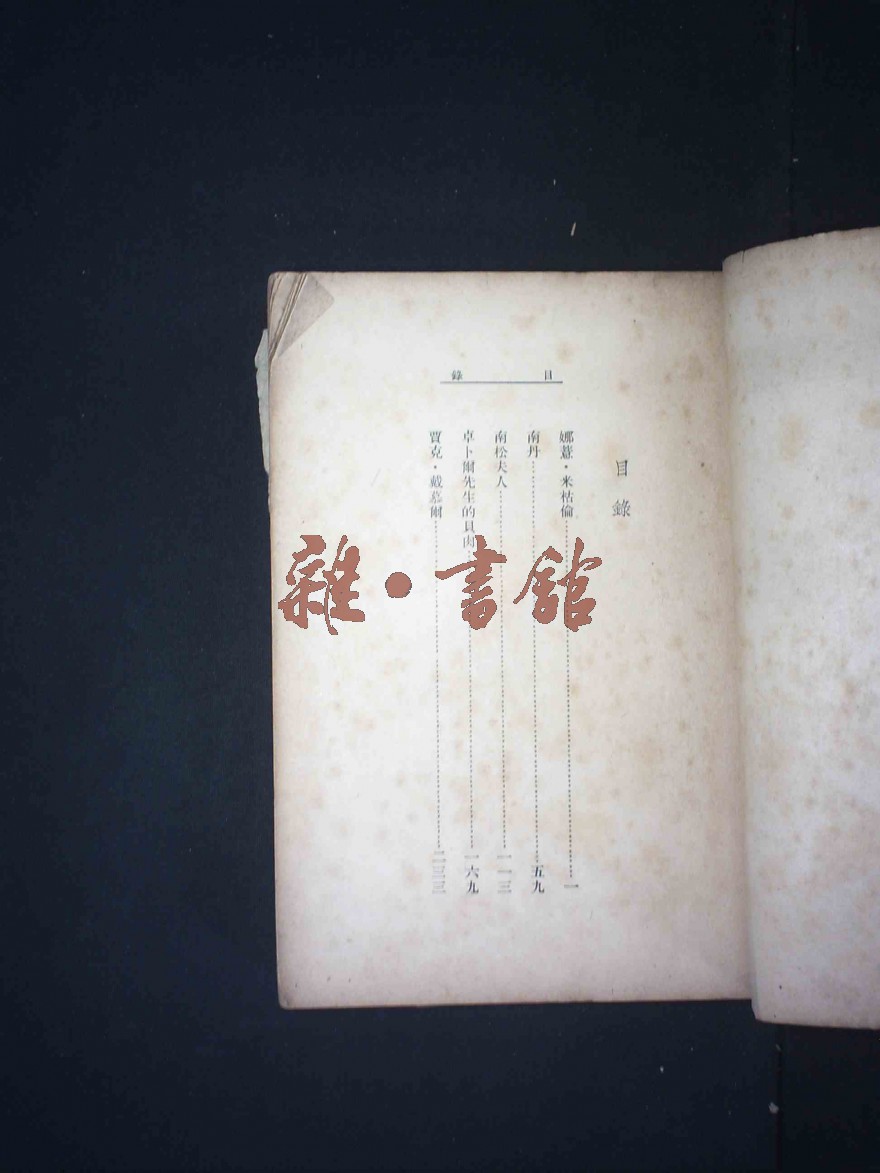 目錄
目錄
娜薏・米枯倫 一
南丹 五九
南松夫人 一一三
卓卜爾先生的貝肉 一六九
賈克・戴慕爾 二三三
雜・書館